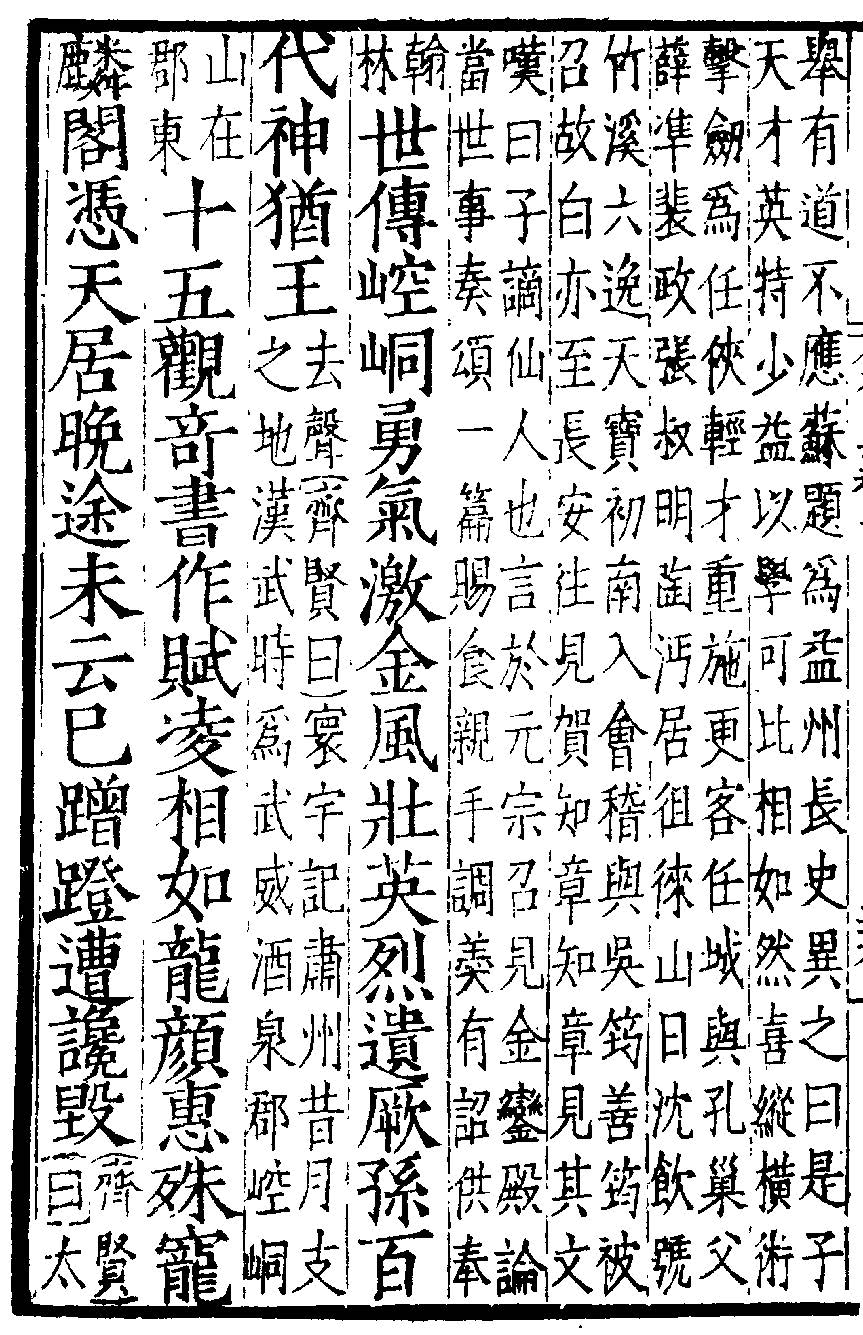 舉有道不應蘇題爲益州長史異之曰是子
天才英特少益以學可比相如然喜縱橫術
擊劒爲任俠輕才重施更客任城與孔巢父
薛準裴政張叔明陶沔居徂徠山日沈飲號
竹溪六逸天寶初南入會稽與吳筠善筠被
召故白亦至長安往見賀知章知章見其文
嘆曰子謫仙人也言於元宗召見金鑾殿論
當世事奏頌一篇賜食親手調羮有詔供奉
翰
林
世傳崆峒勇氣激金風壯英烈遺厥孫百
代神猶王
去聲(齊賢曰)寰宇記肅州昔月支
之地漢武時爲武威酒泉郡崆峒
山在
郡東
十五觀竒書作賦凌相如龍顔惠殊寵
麟閣憑天居晚途未云已蹭蹬遭讒毀
(齊賢
曰)太